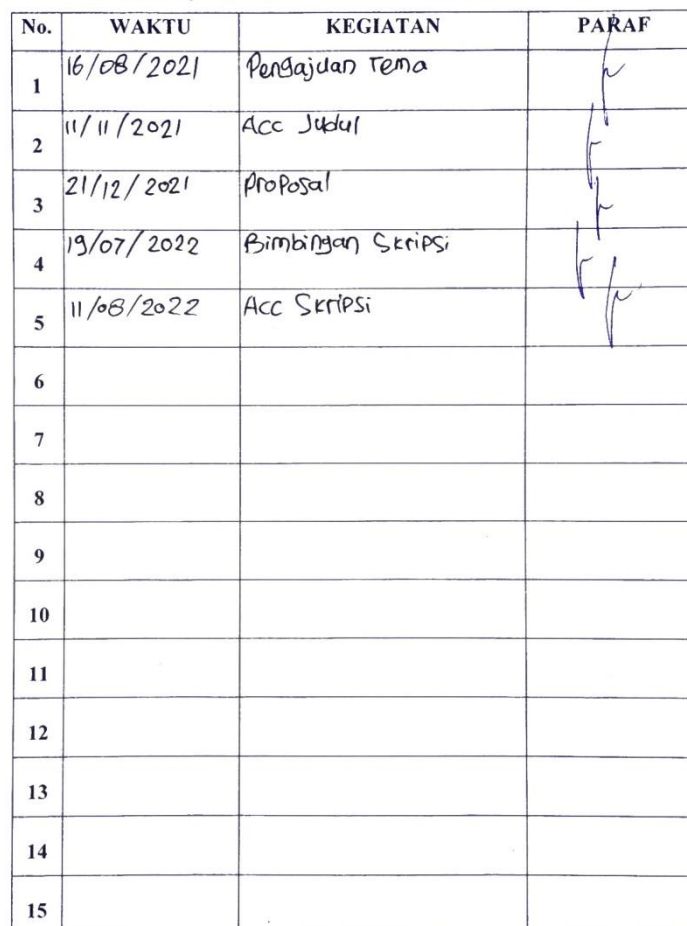 No. WAKTU KEGIATAN PARAF
1 16/08/2021 Pengajuan Tema
2 11/11/2021 Acc Judul
3 21/12/2021 Proposal
4 19/07/2022 Bimbingan Skripsi
5 11/08/2022 Acc Skripsi
6
7
8
9
10
11
12
13
14
15